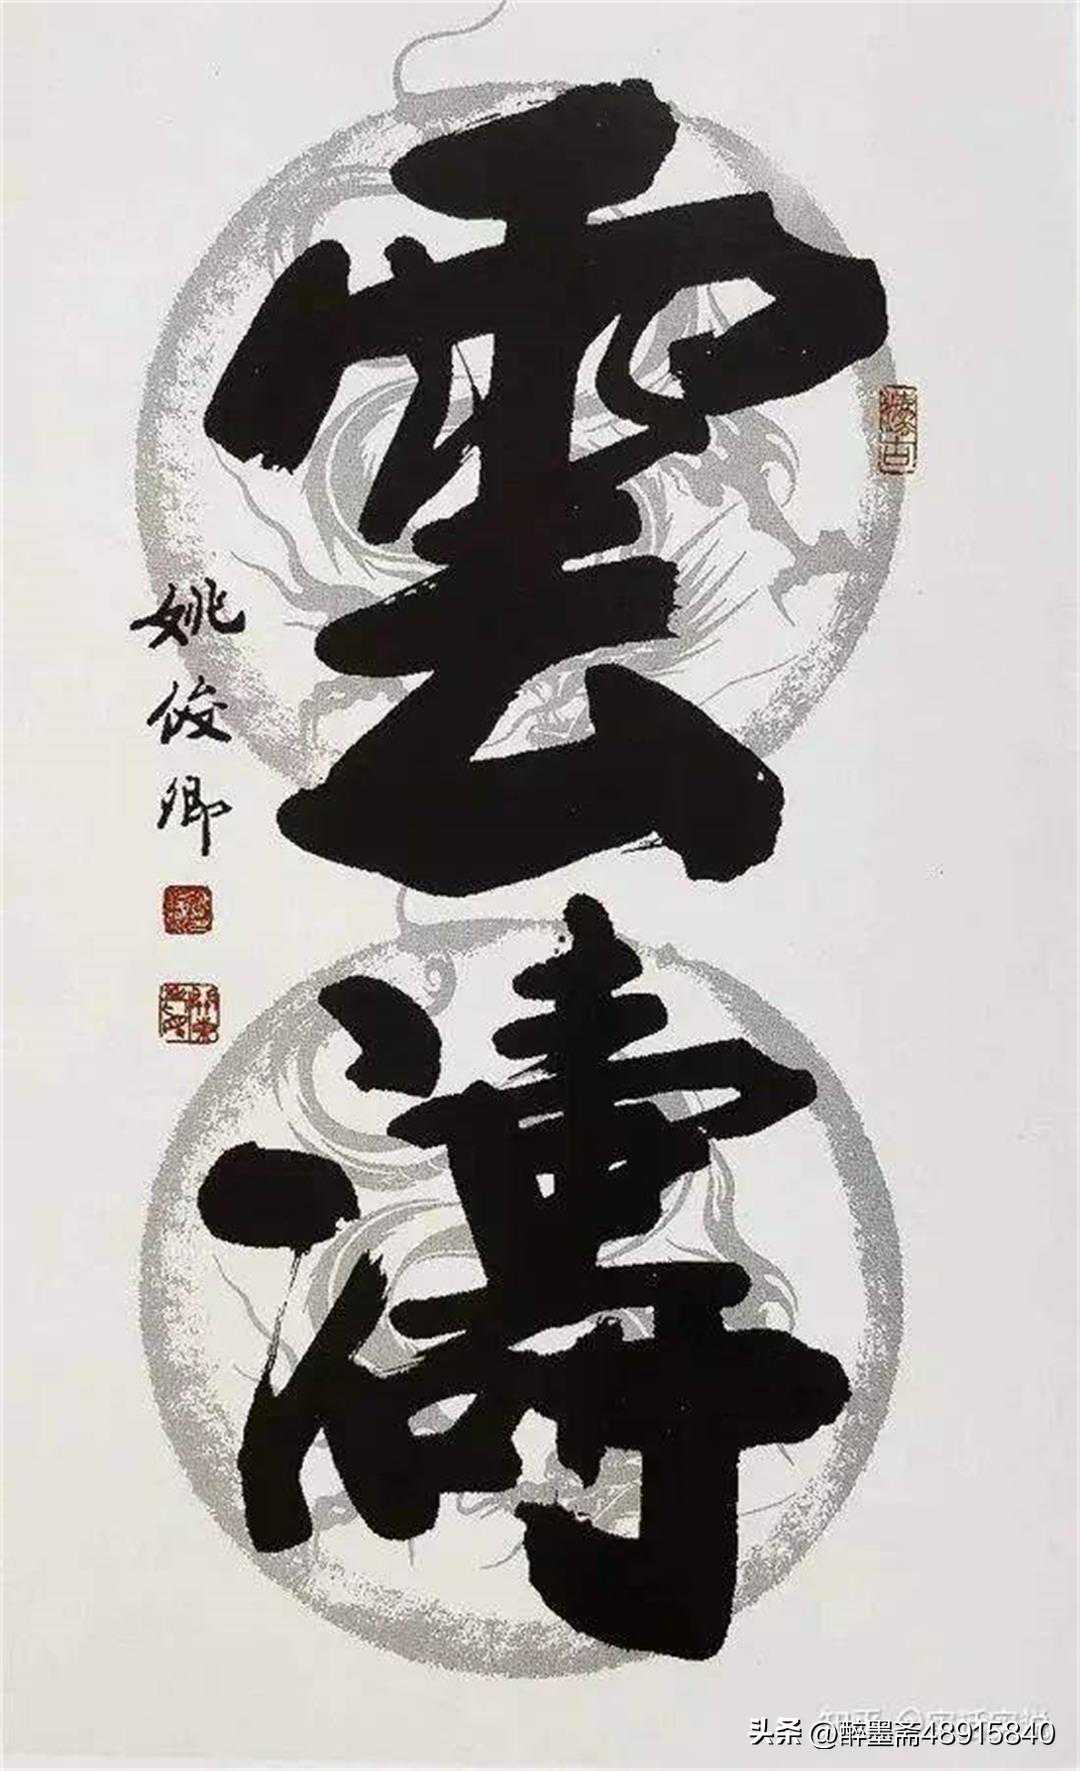 雲濤
姚俊卿
头条 @醉墨斋48915840